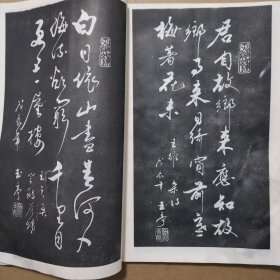 君自故鄉來應知故
鄉事來日綺窗前寒
梅著花未
王維 雜詩
白日依山盡黃河入
海流欲窮千里目
更上一層樓